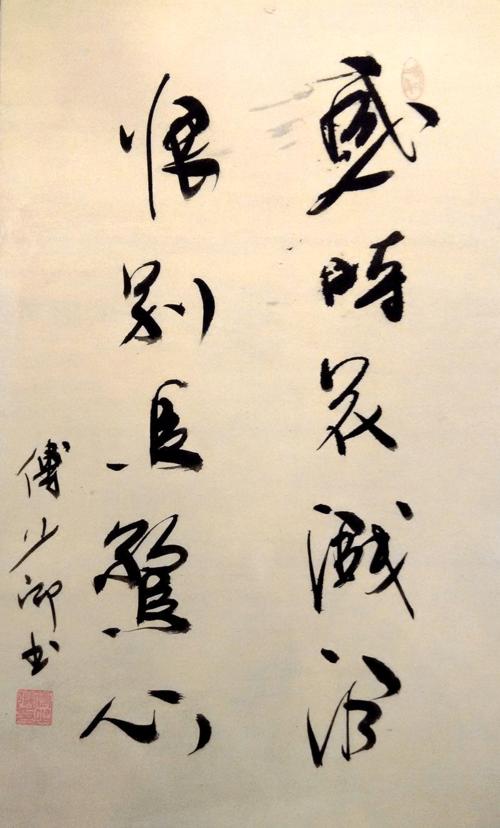 感時花濺淚
恨別鳥驚心
傅少卿書